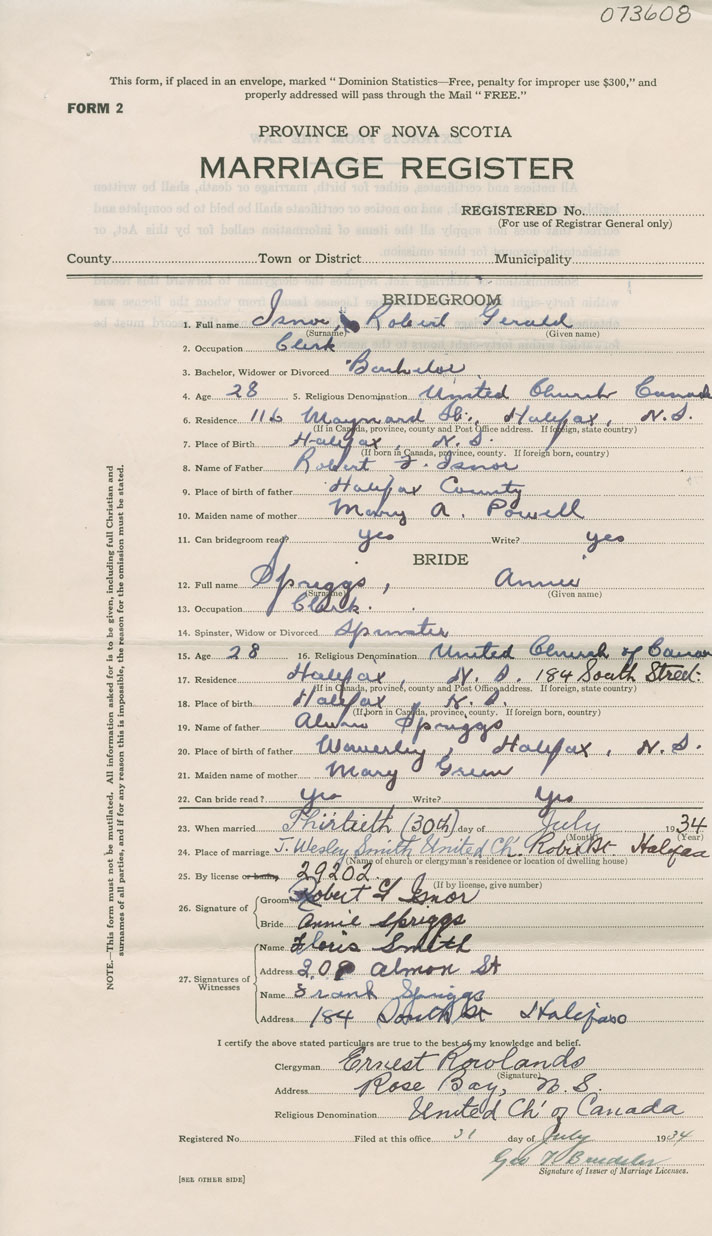 073608
This form, if placed in an envelope, marked “ Dominion Statistics—Free, penalty for improper use $300,” and
properly addressed will pass through the Mail “ FREE.”
FORM 2
PROVINCE OF NOVA SCOTIA
MARRIAGE REGISTER
REGISTERED No.
(For use of Registrar General only)
County Town or District Municipality
BRIDEGROOM
1. Full name Isnor, Robert Gerald
(Surname) (Given name)
2. Occupation Clerk
3. Bachelor, Widower or Divorced Bachelor
4. Age 28 5. Religious Denomination United Church Canada
6. Residence 116 Maynard St., Halifax, N.S.
(If in Canada, province, county and Post Office address. If foreign, state country)
7. Place of Birth Halifax, N.S.
(If born in Canada, province, county. If foreign born, country)
8. Name of Father Robert F. Isnor
9. Place of birth of father Halifax County
10. Maiden name of mother Mary A. Powell
11. Can bridegroom read? yes Write? yes
BRIDE
12. Full name Spriggs, Annie
(Surname) (Given name)
13. Occupation Clerk.
14. Spinster, Widow or Divorced Spinster
15. Age 28 16. Religious Denomination United Church of Canad
17. Residence Halifax, N.S. 184 South Street.
(If in Canada, province, county and Post Office address. If foreign, state country)
18. Place of birth Halifax, N.S.
(If born in Canada, province, county. If foreign born, country)
19. Name of father Spriggs
20. Place of birth of father Waverley, Halifax, N.S.
21. Maiden name of mother Mary Green
22. Can bride read? Yes Write? Yes
23. When married Thirtieth (30th) day of July 1934
(Month) (Year)
24. Place of marriage J. Wesley Smith United Ch. St Halifax
(Name of church or clergyman's residence or location of dwelling house)
25. By license or banns 29202
(If by license, give number)
26. Signature of Groom Robert G Isnor
Bride Annie Spriggs
27. Signatures of Witnesses
Name Smith
Address 20 Almon St
Name Frank Spriggs
Address 184 South St Halifax
I certify the above stated particulars are true to the best of my knowledge and belief.
Clergyman Ernest Rowlands
(Signature)
Address Rose Bay, N.S.
Religious Denomination United Ch' of Canada
Registered No. Filed at this office 31 day of July 1934
Geo
Signature of Issuer of Marriage Licenses.
[SEE OTHER SIDE]
NOTE.—This form must not be mutilated. All information asked for is to be given, including full Christian and
surnames of all parties, and if for any reason this is impossible, the reason for the omission must be stated.